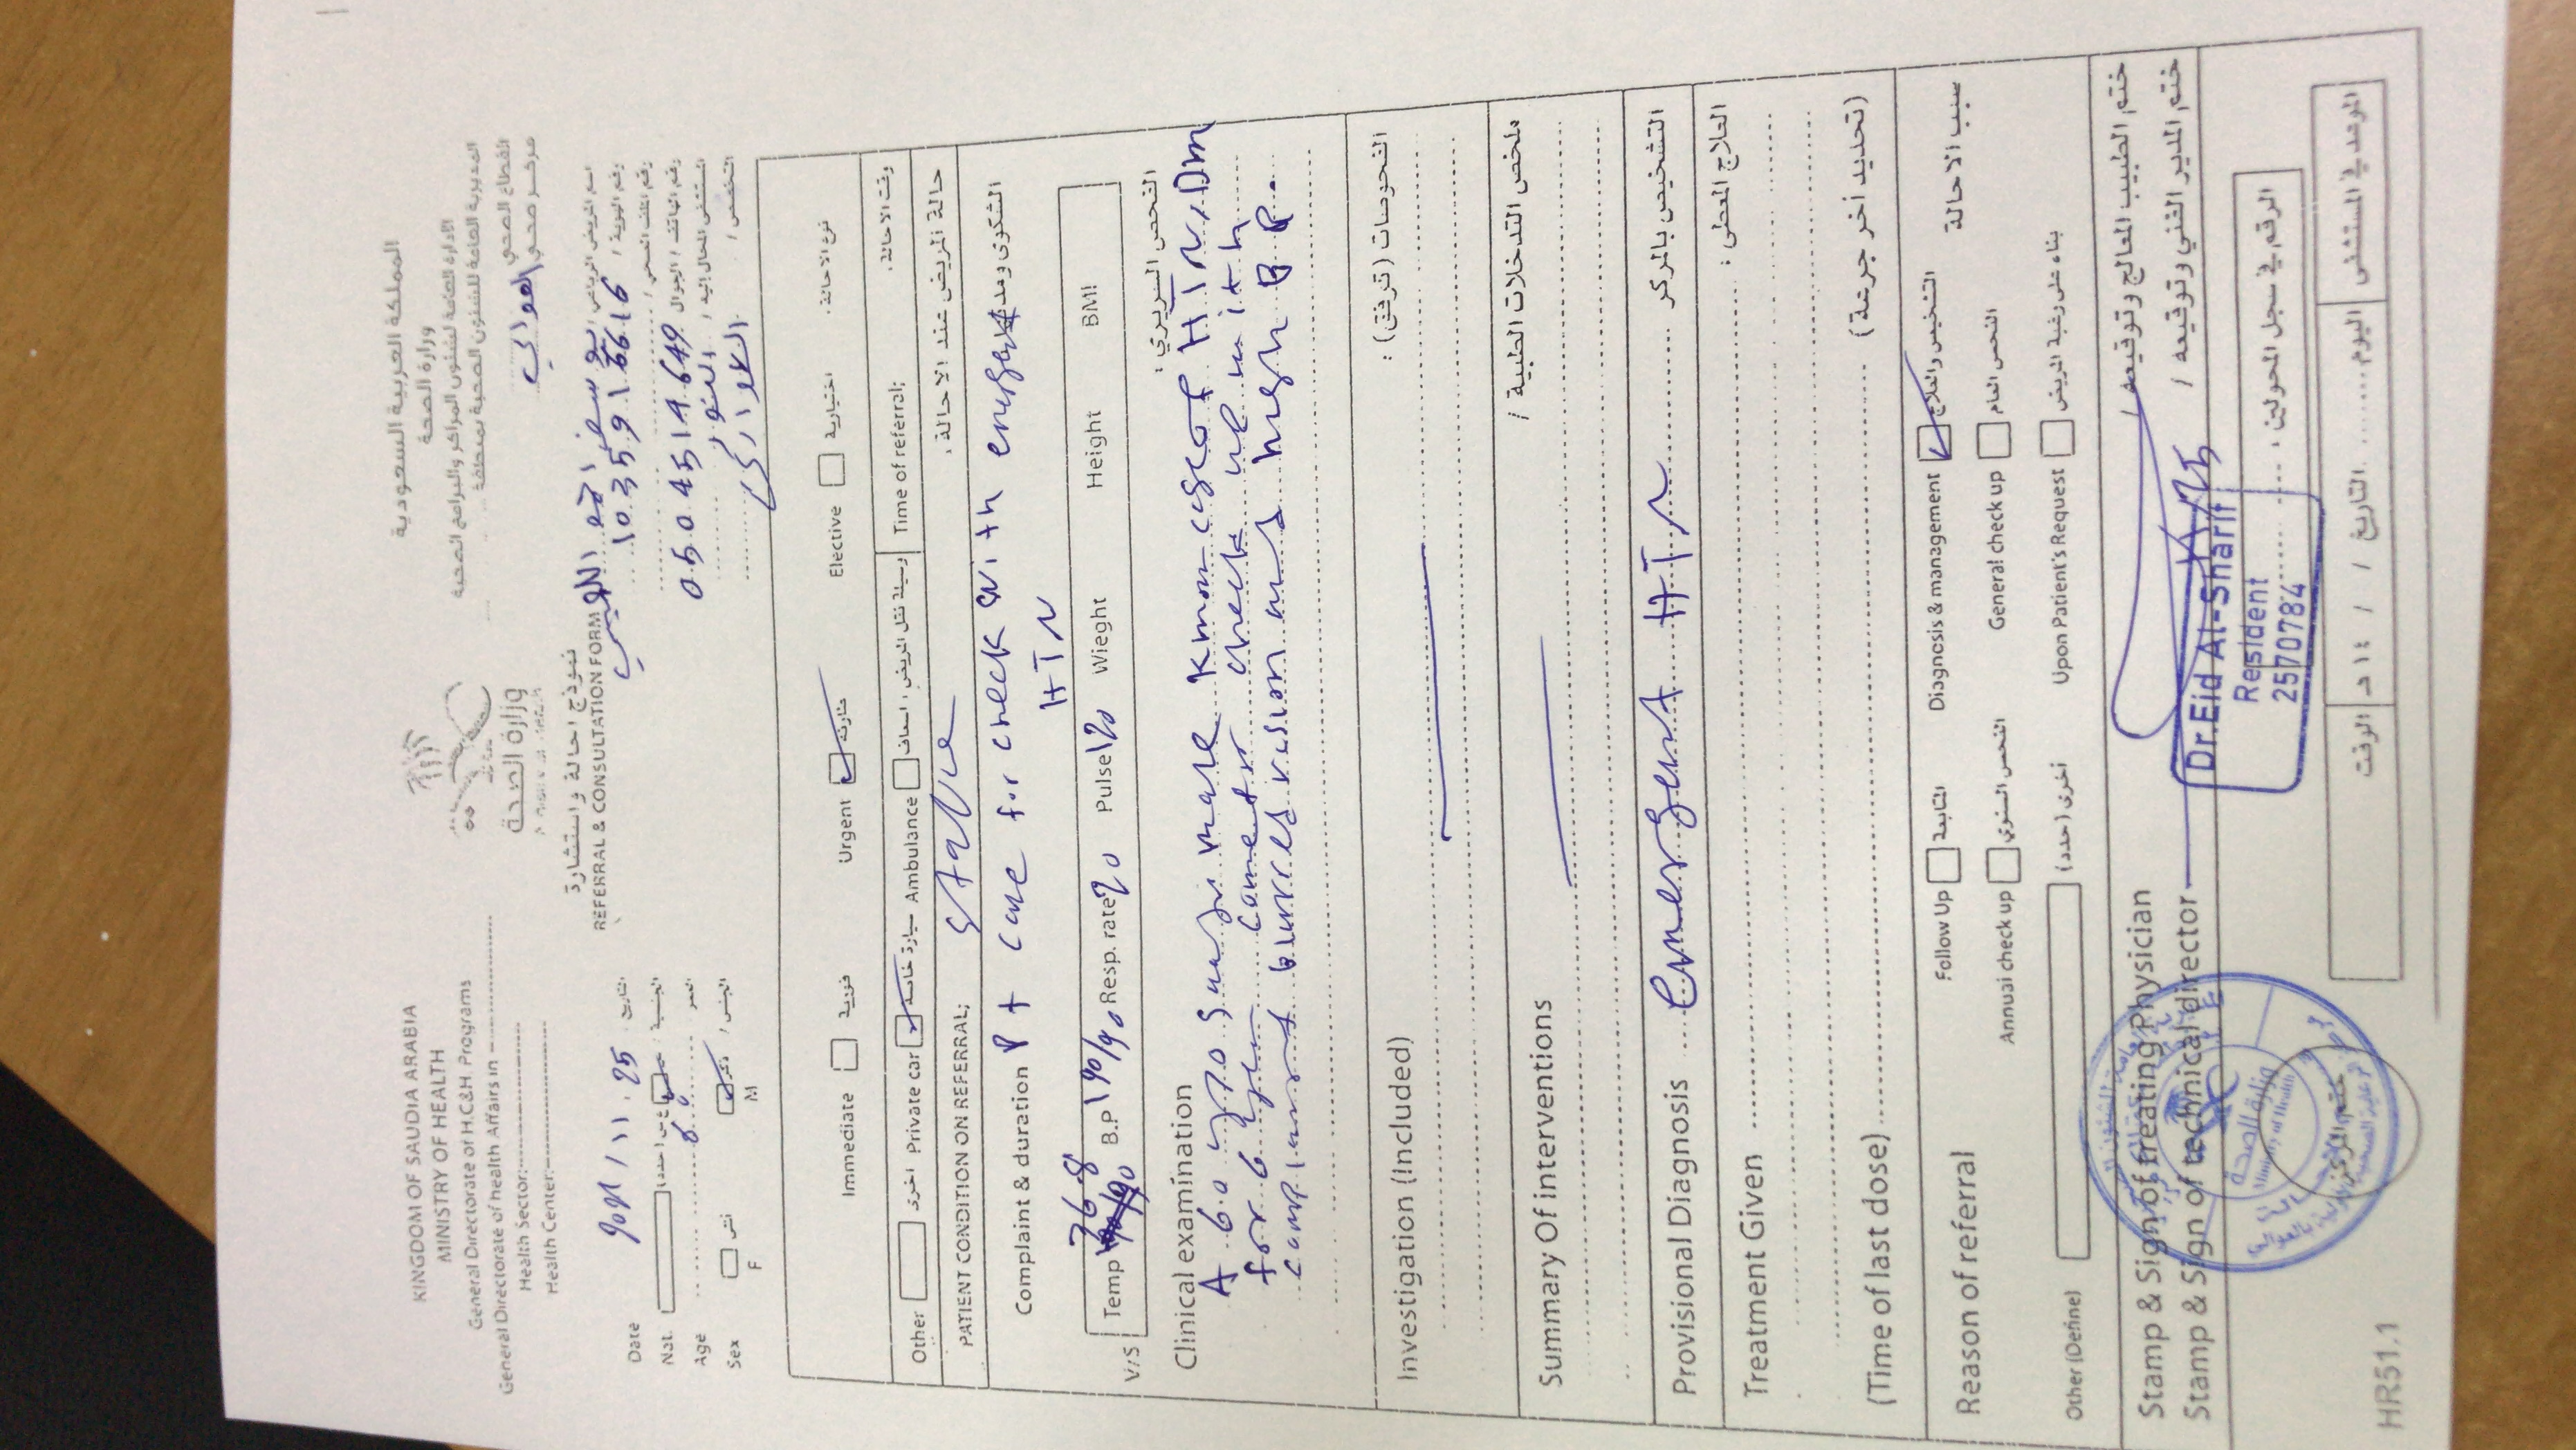 KINGDOM OF SAUDIA ARABIA
MINISTRY OF HEALTH
General Directorate of H.C&H. Programs
General Directorate of health Affairs in
Health Sector:
Health Center:
المملكة العربية السعودية
وزارة الصحة
الادارة العامة لشئون المراكز والبرامج الصحية
المديرية العامة للشئون الصحية بمنطقة
القطاع الصحي
مركز صحي العوالي
وزارة الصحة
نموذج احالة واستشارة
REFERRAL & CONSULTATION FORM
اسم المريض الرباعي / يوسف احمد
رقم الهوية / 1035916616
رقم الملف الصحي /
رقم الهاتف / الجوال 0504514649
المستشفى المحال إليه / النور
التخصص / الطوارئ
Date 11 . 25 التاريخ
Nat. الجنسية :
Age 60 العمر
Sex أنثى ذكر الجنس /
F M
Immediate فورية Urgent Elective اختيارية نوع الاحالة .
Other اخرى Private car سيارة خاصة Ambulance وسيلة نقل المريض ، اسعاف Time of referral; وقت الاحالة .
PATIENT CONDITION ON REFERRAL; stable حالة المريض عند الاحالة .
Complaint & duration Pt came for check with emergent الشكوى
HTN
36.8
V/S Temp B.P 190/90 Resp. rate 20 Pulse 120 Wieght Height BMI
Clinical examination الفحص السريري :
A 60 y/o Saudi male known case of HTN, DM
for 6 year came for check up with
complaint blurred vision and high B P.
Investigation (Included) الفحوصات (ترفق) :
Summary Of interventions ملخص التدخلات الطبية /
Provisional Diagnosis emergent HTN التشخيص بالمركز
Treatment Given العلاج المعطى :
(Time of last dose) (تحديد أخر جرعة)
Reason of referral Follow Up المتابعة Diagnosis & management التشخيص والعلاج سبب الاحالة
Annual check up الفحص السنوي General check up الفحص العام
Other (Define) أخرى (حدد) Upon Patient's Request بناء على رغبة المريض
Stamp & Sign of treating Physician ختم الطبيب المعالج وتوقيعه /
Stamp & Sign of technical director ختم المدير الفني وتوقيعه /
Dr.Eid Al-Sharif
Resident
2570784
الرقم في سجل المحولين ،
وزارة الصحة
Ministry of Health
ختم المركز
الموعد في المستشفى اليوم التاريخ / / ١٤ هـ الوقت
HR51.1